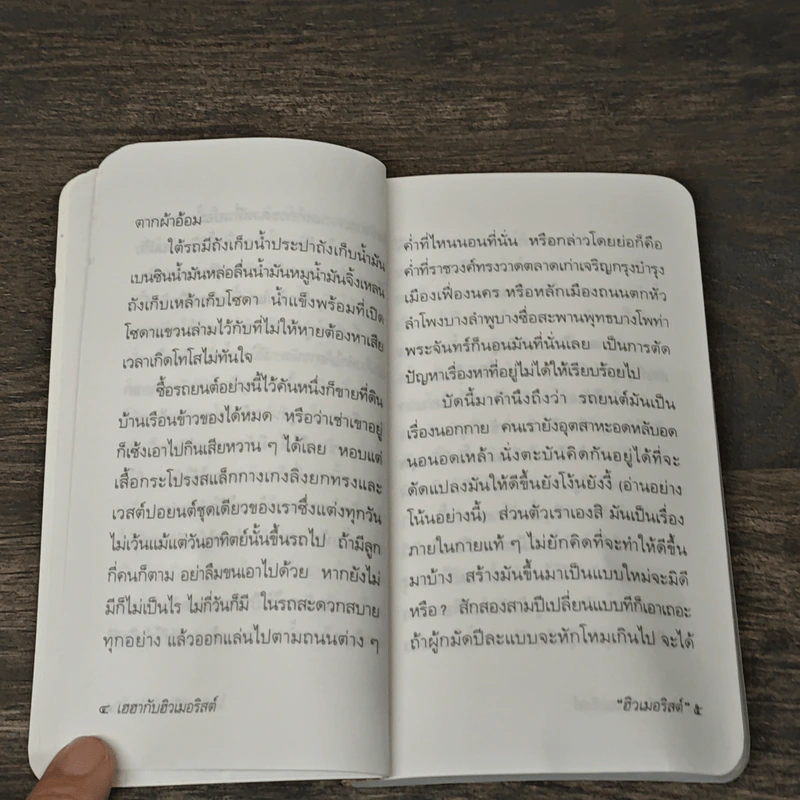 ตากผ้าอ้อม
ใต้รถมีถังเก็บน้ำประปาถังเก็บน้ำมัน
เบนซินน้ำมันหล่อลื่นน้ำมันหมูน้ำมันจิ้งเหลน
ถังเก็บเหล้าเก็บโซดา น้ำแข็งพร้อมที่เปิด
โซดาแขวนล่ามไว้กับที่ไม่ให้หายต้องหาเสีย
เวลาเกิดโทโสไม่ทันใจ
ซื้อรถยนต์อย่างนี้ไว้คันหนึ่งก็ขายที่ดิน
บ้านเรือนข้าวของได้หมด หรือว่าเช่าเขาอยู่
ก็เซ้งเอาไปกินเสียหวาน ๆ ได้เลย หอบแต่
เสื้อกระโปรงสแล็กกางเกงลิงยกทรงและ
เวสต์ปอยนต์ชุดเดียวของเราซึ่งแต่งทุกวัน
ไม่เว้นแม้แต่วันอาทิตย์นั้นขึ้นรถไป ถ้ามีลูก
กี่คนก็ตาม อย่าลืมขนเอาไปด้วย หากยังไม่
มีก็ไม่เป็นไร ไม่กี่วันก็มี ในรถสะดวกสบาย
ทุกอย่าง แล้วออกแล่นไปตามถนนต่าง ๆ
๔ เฮฮากับฮิวเมอริสต์
ค่ำที่ไหนนอนที่นั่น หรือกล่าวโดยย่อก็คือ
ค่ำที่ราชวงศ์ทรงวาดตลาดเก่าเจริญกรุงบำรุง
เมืองเฟื่องนคร หรือหลักเมืองถนนตกหัว
ลำโพงบางลำพูบางซื่อสะพานพุทธบางโพท่า
พระจันทร์ก็นอนมันที่นั่นเลย เป็นการตัด
ปัญหาเรื่องหาที่อยู่ไม่ได้ให้เรียบร้อยไป
บัดนี้มาคำนึงถึงว่า รถยนต์มันเป็น
เรื่องนอกกาย คนเรายังอุตสาหะอดหลับอด
นอนอดเหล้า นั่งตะบันคิดกันอยู่ได้ที่จะ
ดัดแปลงมันให้ดีขึ้นยังโง้นยังงี้ (อ่านอย่าง
โน้นอย่างนี้) ส่วนตัวเราเองสิ มันเป็นเรื่อง
ภายในกายแท้ ๆ ไม่ยักคิดที่จะทำให้ดีขึ้น
มาบ้าง สร้างมันขึ้นมาเป็นแบบใหม่จะมิดี
หรือ? สักสองสามปีเปลี่ยนแบบทีก็เอาเถอะ
ถ้าผู้กมัดปีละแบบจะหักโหมเกินไป จะได้
"ฮิวเมอริสต์" ๕